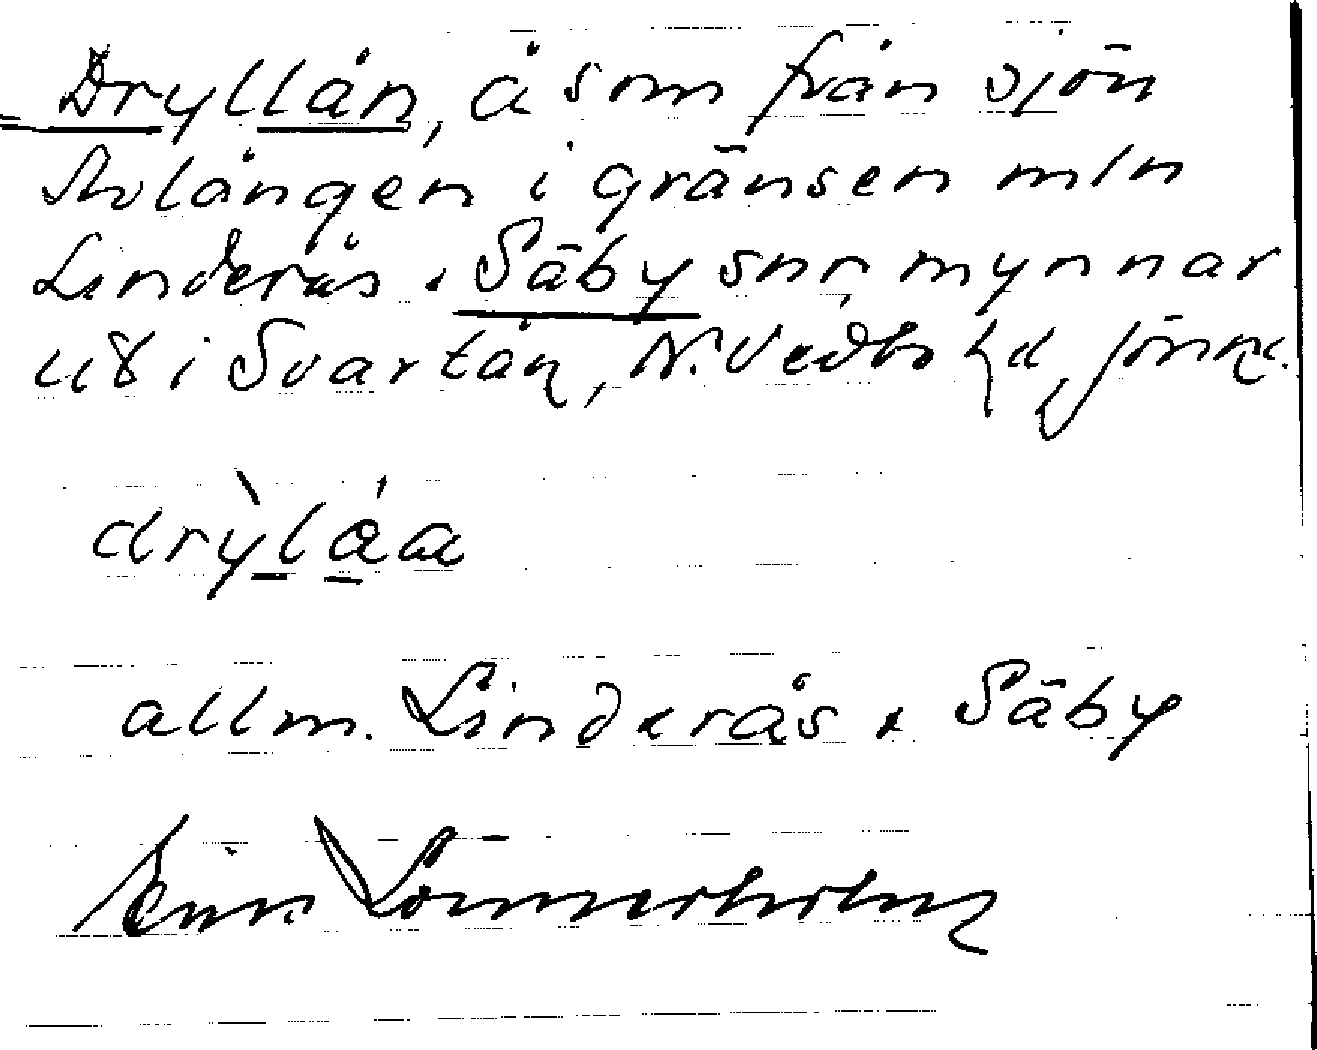 Dryllån, å som från sjön
Noen i gränsen mln
Linderås o. Säby snr, mynnar
ut i Svartån, N. Vedbo hd, Jönk.
drỳlåa
allm. Linderås o. Säby
Einar Lönnerholm